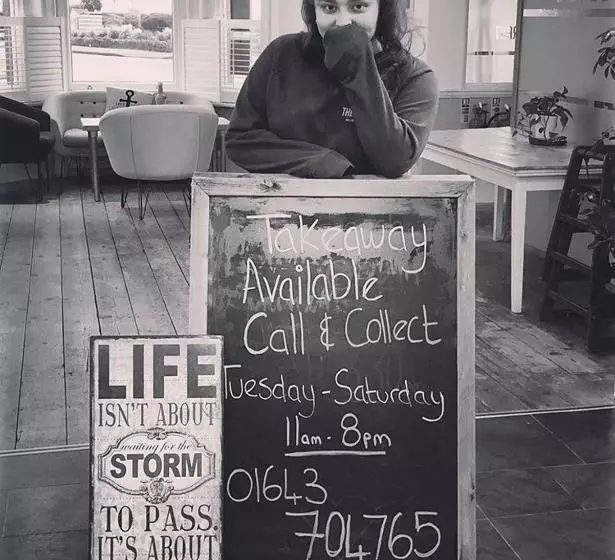 THE
Takeaway
Available
Call & Collect
Tuesday-Saturday
11am - 8pm
01643
704765
LIFE
ISN'T ABOUT
waiting for the
STORM
TO PASS.
IT'S ABOUT